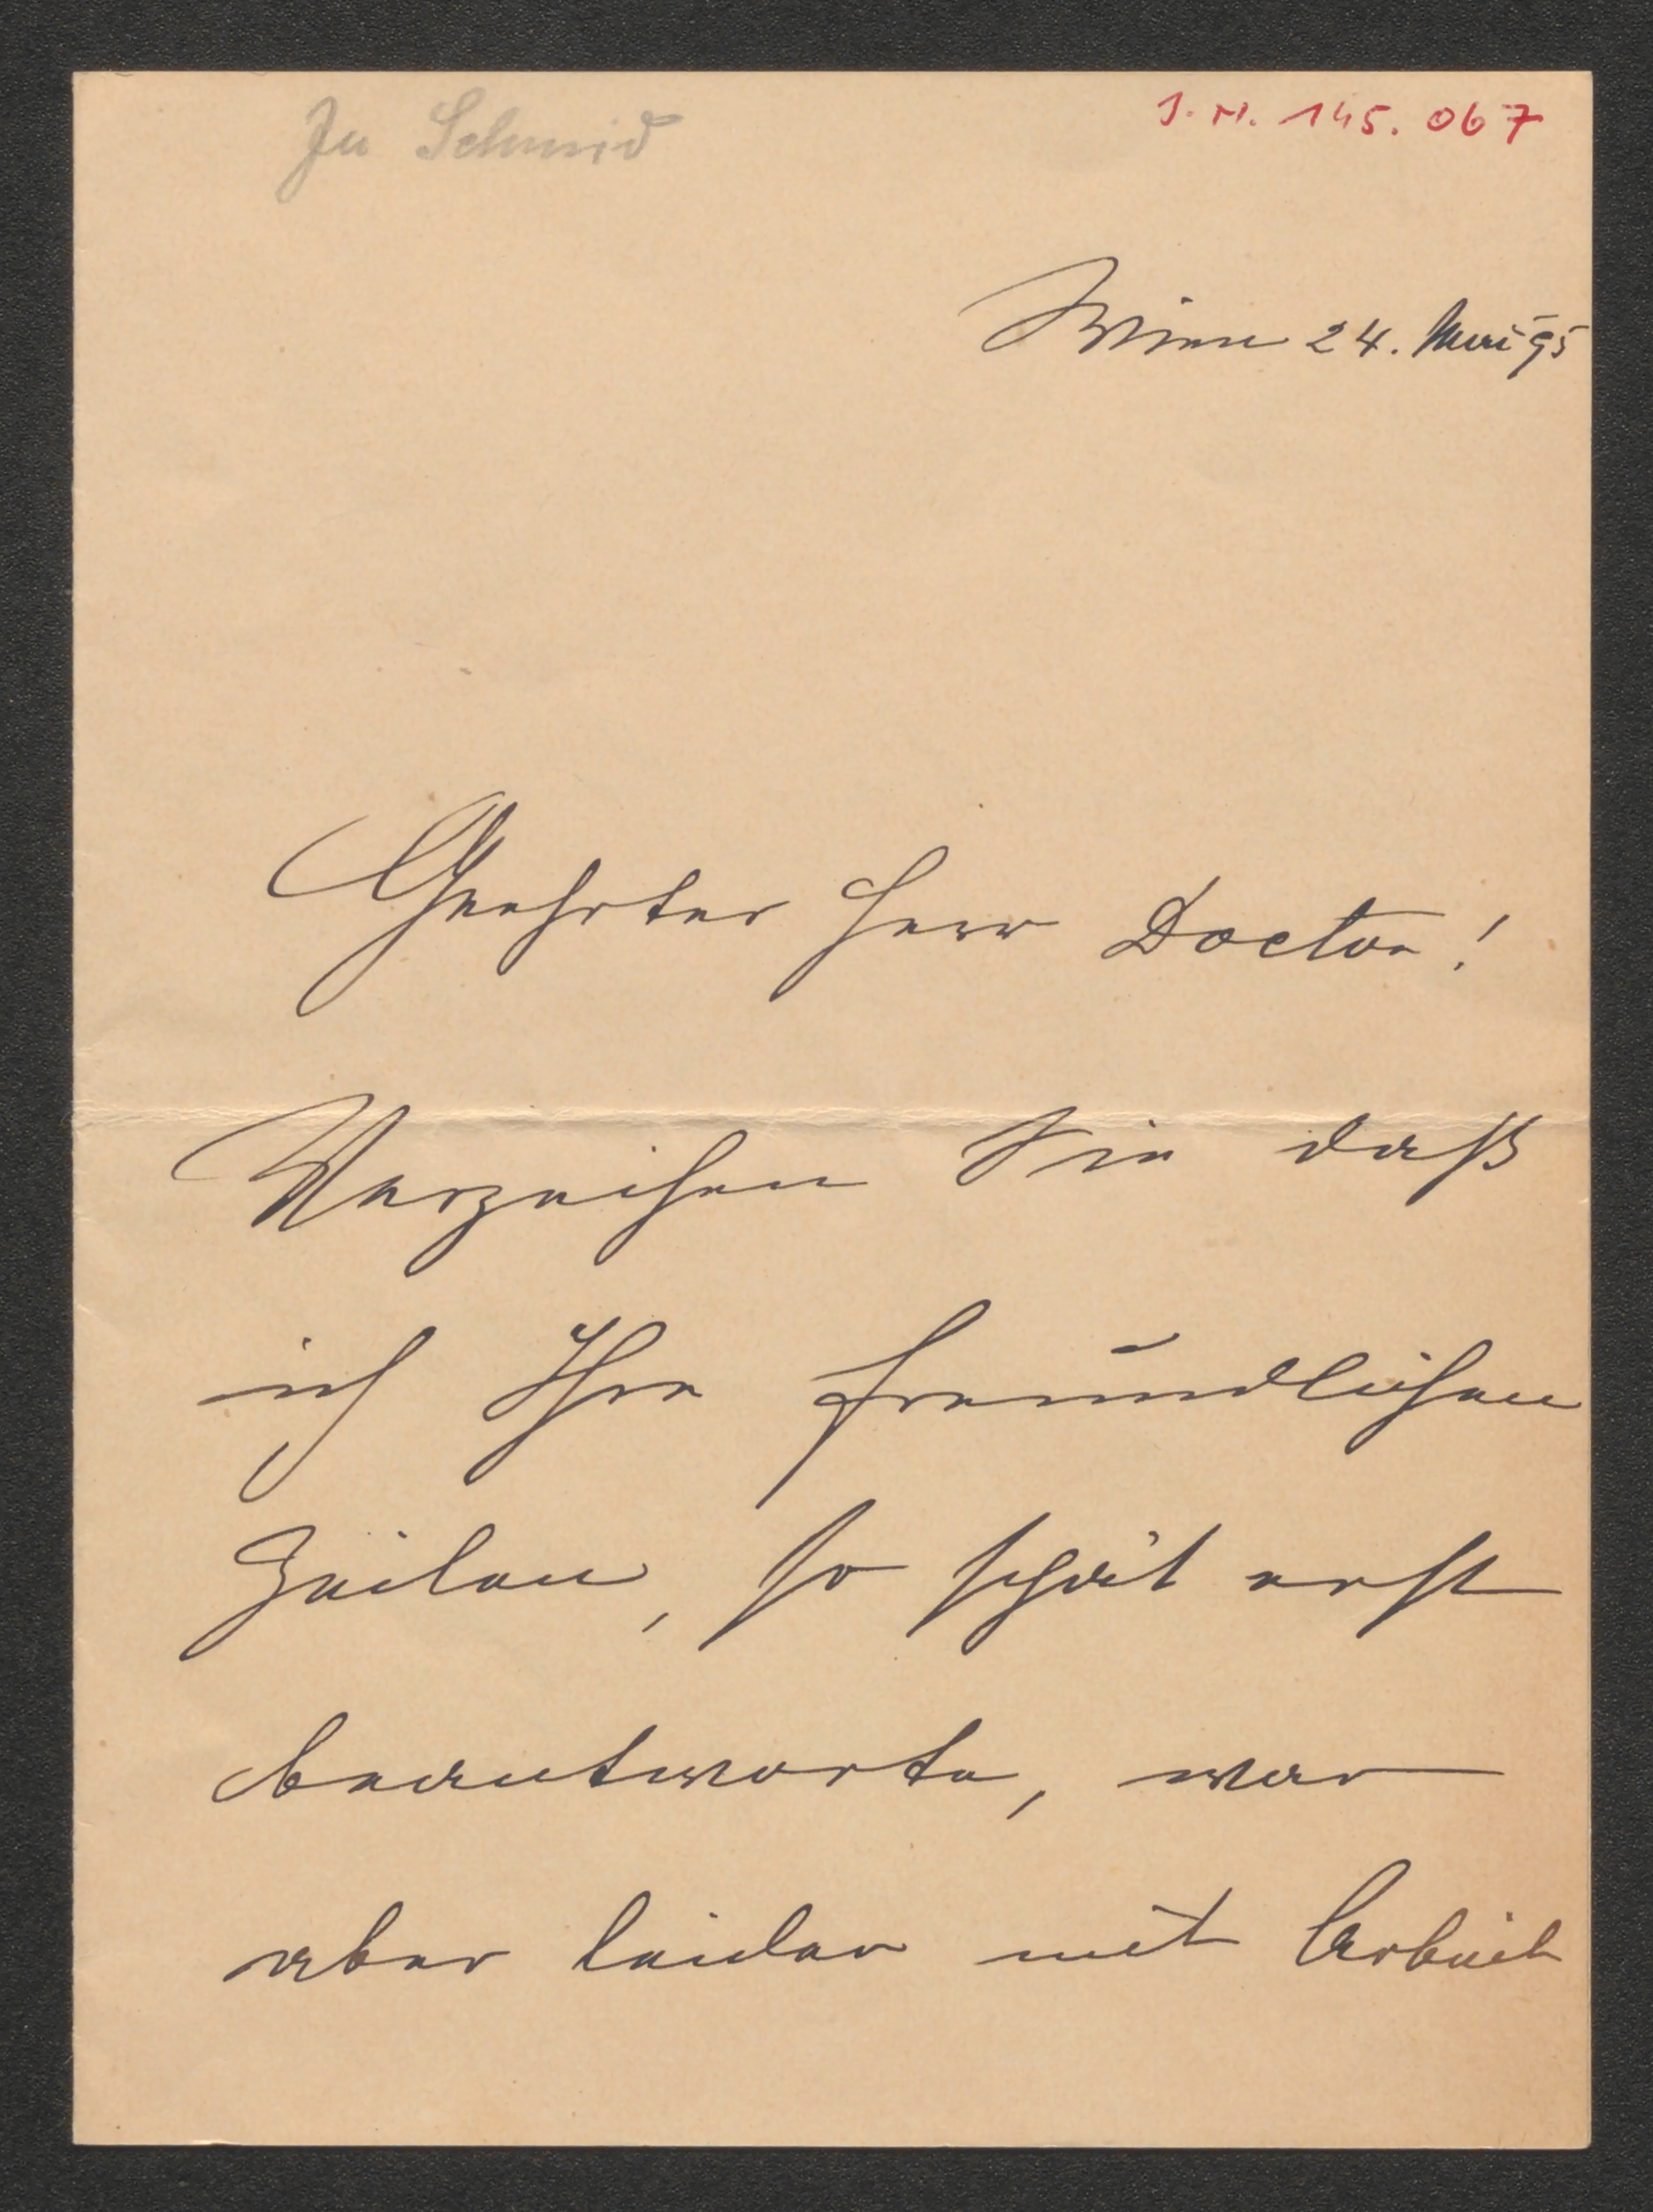 Zu Schmid
J.N. 145.067
Wien 24. Mai 95
Geehrter Herr Doctor!
Verzeihen Sie daß
ich Ihre freundlichen
Zeilen, so spät erst
beantworte, war
aber leider mit Arbeit